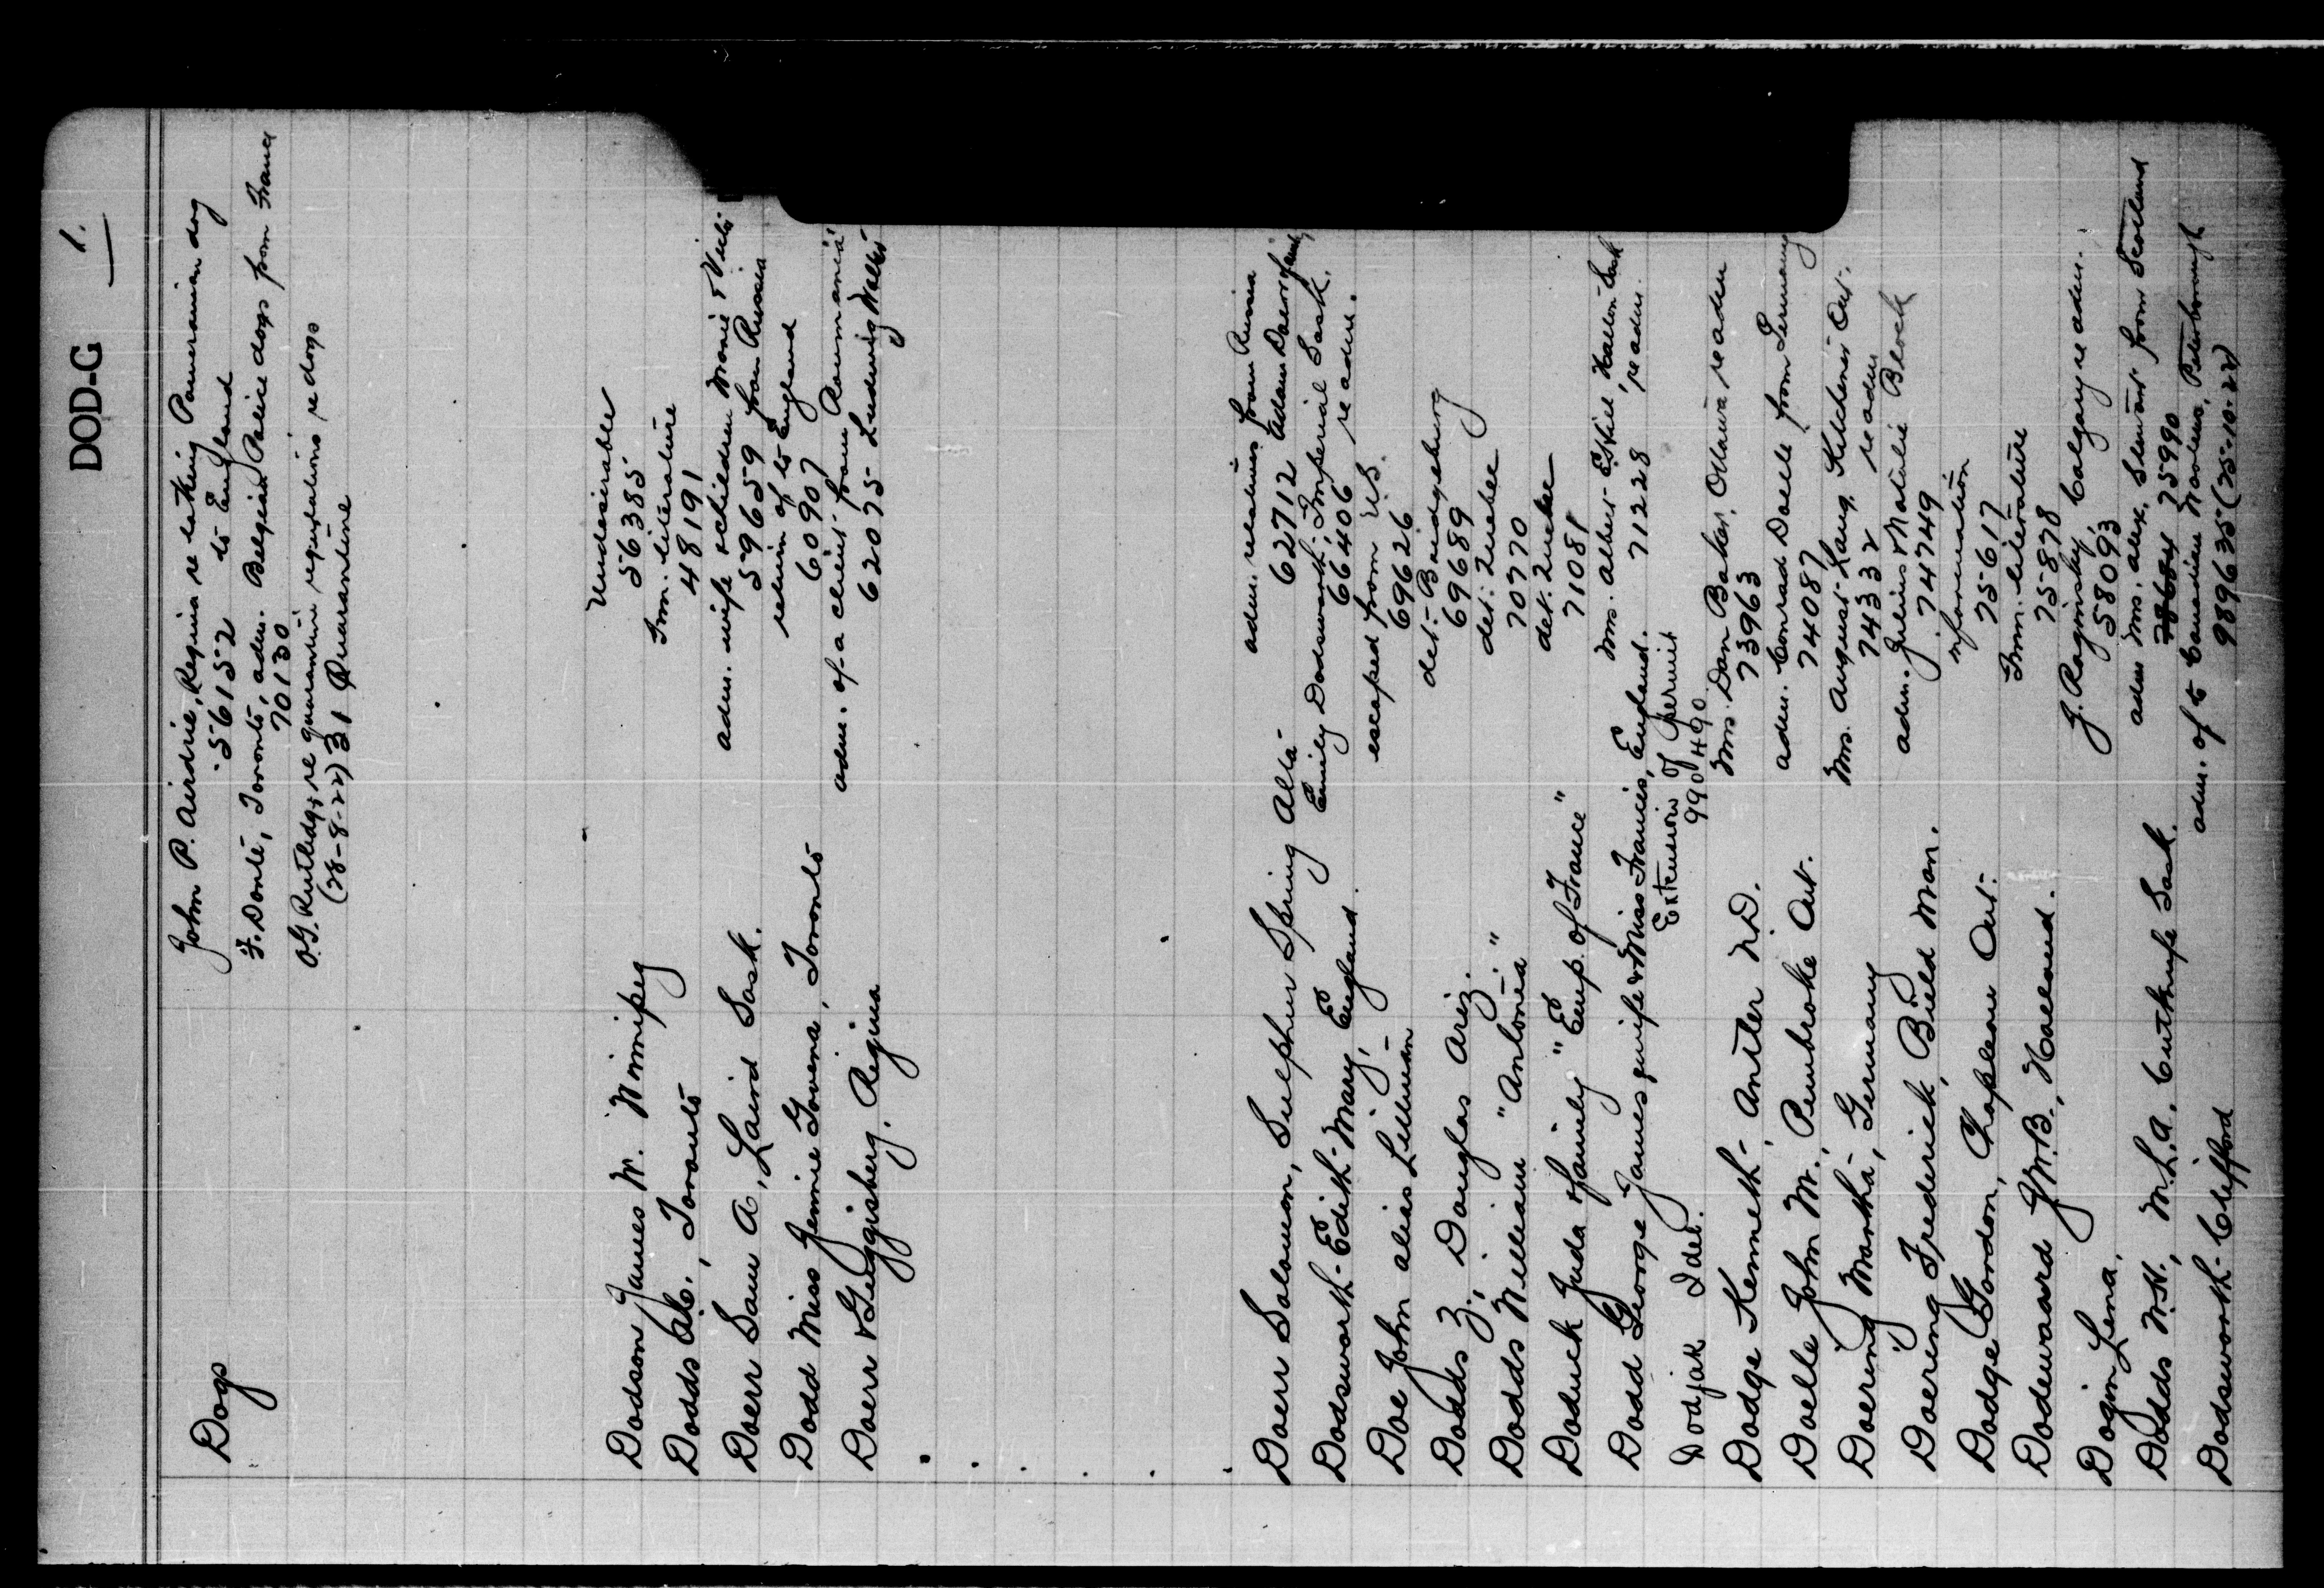 DOD-G 1.
Dogs John P. Airdrie, Regina re taking Pomeranian dog
56152 to England
F. Donté, Toronto, adm. Belgian Police dogs from France
70130
O.G. Rutledge re quarantine regulations re dogs
(28-8-22) 31 Quarantine
Undesirable
Dodson James W. Winnipeg 56385
Imm. literature
Dodds A.C., Toronto 48191
adm. wife & children Monie &
Doerr Sam A, Laird Sask. 59659 from Russia
return of to England
Dodd Miss Jennie Govina, Toronto 60907
adm. of a client from Roumania
Doerr & Guggisberg, Regina 62075 Ludwig
adm. relatives from Russia
Doerr Solomon, Sulphur Spring Alta 62712 Adam Doerr & family
Emily Dodsworth, Imperial Sask.
Dodsworth Edith Mary, England 66406 re adm.
escaped from U.S.
Doe John alias Lillman 69626
det. Bridgeburg
Dodds Z., Douglas Ariz. 69689
det. Quebec
Dodds William "Antonia" 70770
det. Quebec
Doduck Juda & family "Emp. of France" 71081
Mrs. Albert Eskil, Sask
Dodd George James, wife & Miss Francis, England. 71228 re adm.
Extension of permit
Dodjak Idel. 990490
Mrs. Dan Baker, Ottawa re adm
Dodge Kenneth, Antler N.D. 73963
adm. Conrad Doelle from Germany
Doelle John M., Pembroke Ont. 74087
Mrs. August Lang, Kitchener Ont.
Doering Martha, Germany 74332 re adm
adm. Julius & Natalie Block
Doering Frederick, Bield Man. 74749
information
Dodge Gordon, Chapleau Ont. 75617
Imm. literature
Dodewaard J.W.B., Holland. 75878
J. Raginsky, Calgary re adm.
Dogin Lena. 58093
adm Mrs. Alex. Stewart from Scotland
Dodds W.H., M.L.A. Cutknife Sask. 78684 75990
adm. of to Canadian Peterborough
Dodsworth Clifford 989635 (25-10-22)